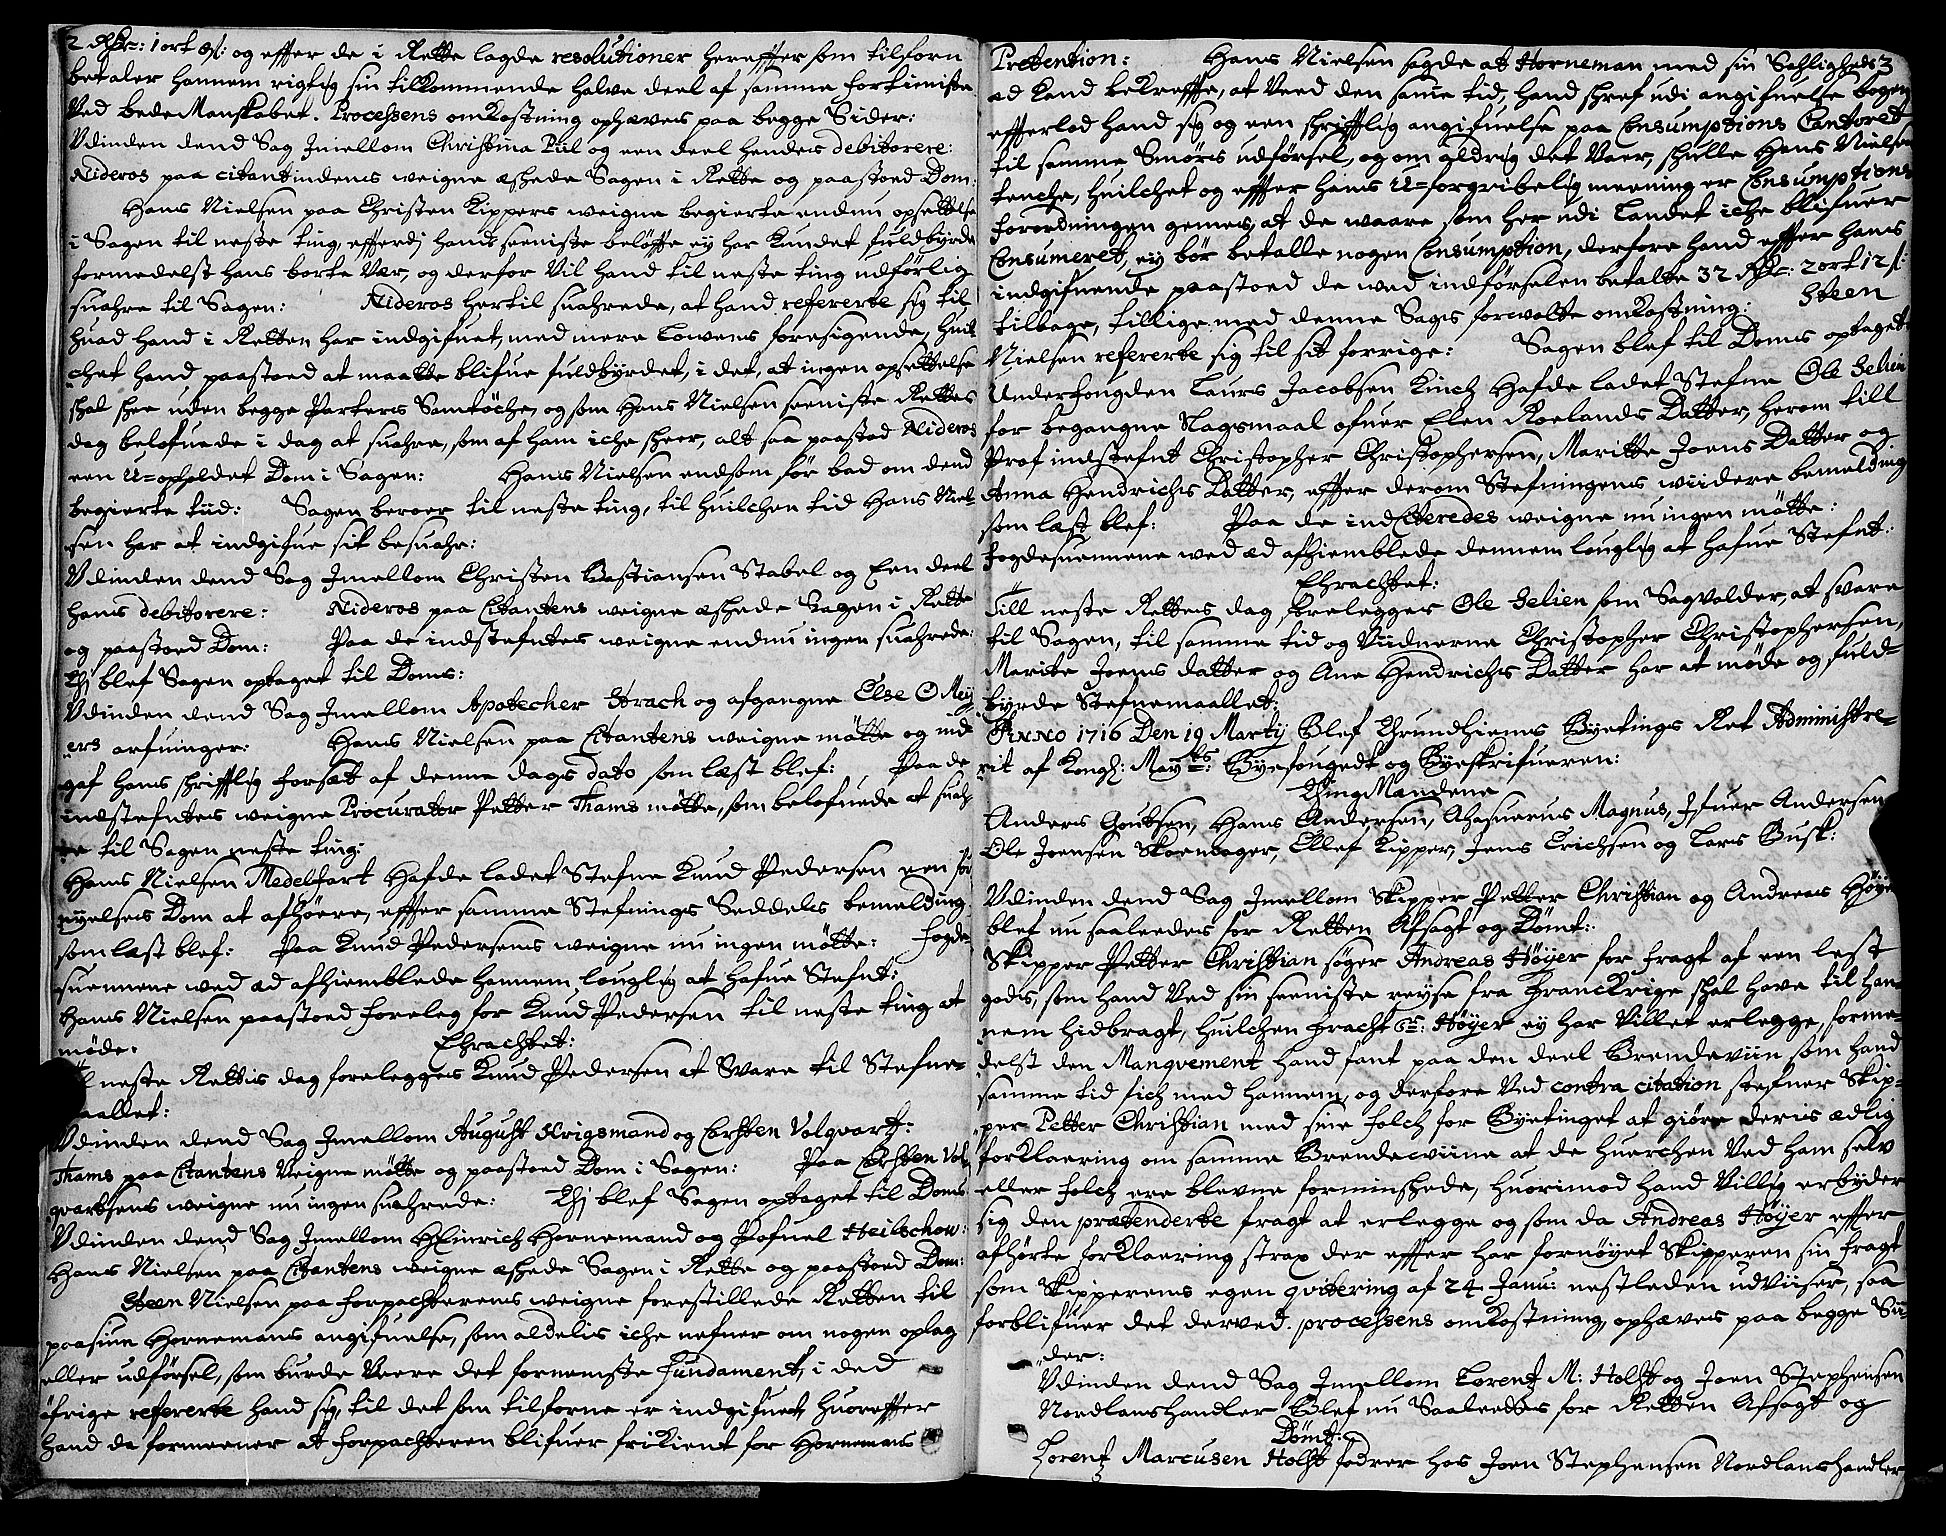 2 Rdr: 1 ort 8 s: og effter de i Rette lagde resolutioner hereffter som tilforn
betaler hannem rigtig sin tilkommende halve deel af samme fortieniste
Ved bede Manskabet. Processens omkostning ophæves paa begge Sider:
Udinden dend Sag Imellom Christina Piil og een deel hendes debitorere:
Nideros paa citantindens weigne æskede Sagen i Rette og paastoed Dom:
Hans Nielsen paa Christen Kippers weigne begierte endnu opsettelse
i Sagen til neste ting, efferdj hands seeniste beløffte ej har kundet fuldbyrde
formedelst hans borte Vær, og derfor Vil hand til neste ting udførlig
suahre til Sagen: Nideros hertil suahrede, at hand refererte sig til
huad hand i Retten har indgifuet, med mere Lowens foresigende, huil
chet hand paastoed at maatte blifue fuldbyrdet, i det, at ingen opsettelse
skal skee uden begge Parters Samtøche, og som Hans Nielsen seeniste Rettes
dag belofuede i dag at suahre, som af ham iche skeer, alt saa paastod Nideros
een U=opholdet Dom i Sagen: Hans Nielsen endsom før bad om dend
begierte tiid: Sagen beroer til neste ting, til huilchen tid Hans Niel-
sen har at indgifue sit besuahr:
Udinden dend Sag Imellom Christen Bastiansen Stabel og Een deel
hans debitorere: Nideros paa Citantens weigne æskede Sagen i Rette
og paastoed Dom: Paa de indstefntes weigne endnu ingen suahrede:
Thj blef Sagen optaget til Doms:
Udinden dend Sag Imellom Apotecher Strach og afgangne Else O Mey
ers arfuinger: Hans Nielsen paa Citantens weigne møtte og ind
gaf hans skrifftlig forsæt af denne dags dato som læst blef: Paa de
indstefntes weigne Procurator Petter Thams møtte, som belofuede at suah
re til Sagen neste ting:
Hans Nielsen Medelfart Hafde ladet Stefne Knud Pedersen een for
nyelses Dom at afhøre, effter samme Stefnings Seddels bemelding
som læst blef: Paa Knud Pedersens weigne nu ingen møtte: Fogde-
suennene wed æd afhiemblede hannem louglig at hafue Stefnt:
Hans Nielsen paastoed foreleg for Knud Pedersen til neste ting at
møde: Ehrachtet:
neste Rettis dag forelegges Knud Pedersen at Svare til Stefne-
aallet:
Udinden dend Sag Imellom August Krigsmand og Corsten Volqvartz:
Thams paa Citantens Veigne møtte og paastoed Dom i Sagen: Paa Corsten Vol
qvartsens weigne nu ingen suahrede: Thj blef Sagen optaget til Doms
Udinden dend Sag Imellom Hinrich Hornemand og Pofuel Heilschow:
Hans Nielsen paa Citantens weigne æskede Sagen i Rette og paastoed Dom:
Steen Nielsen paa forpachterens weigne forestillede Retten til
paasiun Hornemans angifuelse, som aldelis iche nefner om nogen oplag
eller udførsel, som burde Veere det fornemste fundament, i ded
øfrige refererte hand sig til det som tilforne er indgifuet, huoreffter
hand da formeener at forpachteren blifuer frikient for Hornemans
Pretention: Hans Nielsen sagde at Horneman med sin Sahligheds 3
ed kand bekreffte, at Veed den samme tid, hand skref udi angifuelse bogen
effterlod hand sig og een skrifftlig angifuelse paa Consumptions Contoret
til samme Smørs udførsel, og om aldrig det Vaer, skulle Hans Nielsen
tenche, huilchet og effter hans U=forgribelig meening er Consumptions
forordningen gemes, at de waare som her udi Landet iche blifuer
Consumeret, ej bør betalle nogen Consumption, derfore hand effter hans
indgifuende paastoed de wed indførselen betalte 32 Rdr: 2 ort 12 s:
tilbage, tillige med denne Sags forvolte omkostning: Steen
Nielsen refererte sig til sit forrige: Sagen blef til Doms optaget
Underfougden Laurs Jacobsen Kinch Hafde ladet Stefne Ole Selien
for begangne Slagsmaal ofuer Elen Roelands Datter, herom till
Prof indstefnt Christopher Christophersen, Maritte Joens Datter og
Anna Hendrichs Datter, effter derom Stefningens wiidere bemelding
som læst blef: Paa de indCiteredes weigne nu ingen møtte:
Fogdesuennene wed æd afhiemblede dennem louglig at hafue Stefnt:
Ehrachtet:
Till neste Rettes dag forelegges Ole Selien som Sagvolder, at svare
til Sagen, til samme tid og Viidnerne Christopher Christophersen,
Marite Joens datter og Ane Hendrichs Datter har at møde og fuld-
byrde Stefnemaallet:
Anno 1716 Den 19 Martij Blef Thrundhiems Byetings Ret Administre-
rit af Kongl: May:ts: Byefougedt og Byeskrifueren:
Ting Mændene
Anders Gontsen, Hans Andersen, Ahasuerus Magnus, Ifuer Andersen
Ole Joensen Skoenbager, Ellef Kipper, Jens Erichsen og Lars Busk:
Udinden dend Sag Imellom Skipper Petter Christian og Andreas Høyer
blef nu saaleedes for Retten Afsagt og Dømt:
Skipper Petter Christian søger Andreas Høyer for fragt af een lest
gods, som hand Ved sin seeniste reyse fra Franckrige skal have til han-
nem hidbragt, huilchen fracht Sr: Høyer ej har Villet erlegge, forme-
delst den Manqvement hand fant paa den deel Brendeviin som hand
samme tid fich med hannem, og derfore Ved contra citation stefner Skip-
per Petter Christian med sine folch for Byetinget at giøre deris ædlig
forklaering om samme Brendewiine at de huerchen Ved ham selv
eller folch ere blevne forminskede, huorimod hand Villig erbyder
sig den prætenderte fragt at erlegge og som da Andreas Høyer effter
afhørte forklaering strax der effter har fornøyet Skipperen sin fragt
som Skipperens egen qvitering af 24 Janu: nestleden udviiser, saa
forblifuer det derved. processens omkostning ophæves paa begge Sii-
der:
Udinden dend Sag Imellom Lorentz M: Holst og Joen Stephensen
Nordlanshandler Blef nu Saaleedes for Retten Afsagt og
Dømt:
Lorentz Marcusen Holst fodrer hos Joen Stephensen Nordlanshandler